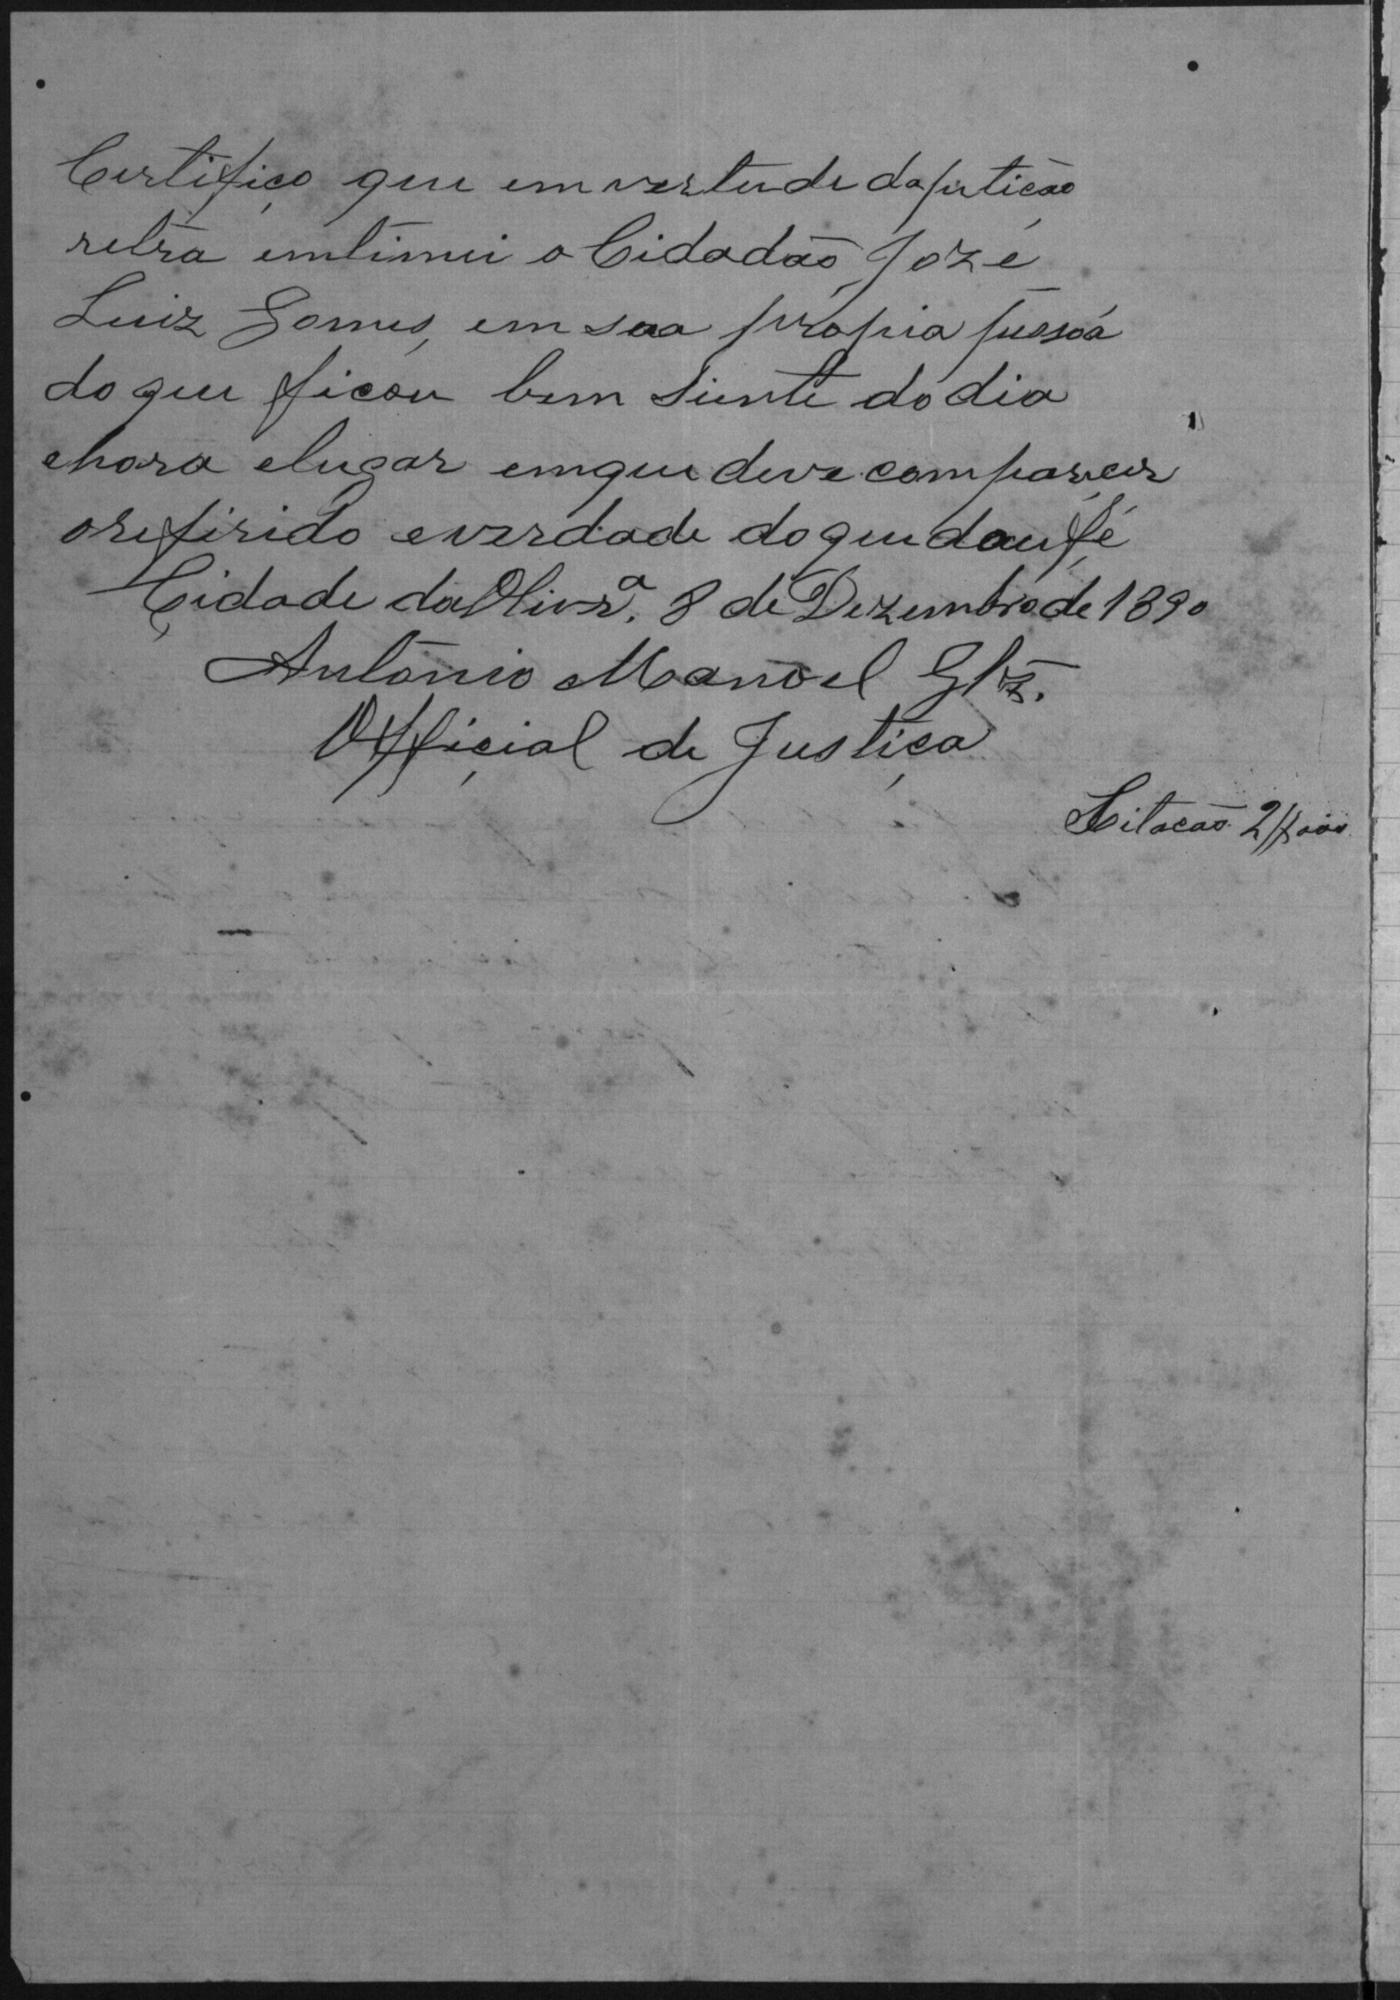 Certifico que em vertude da peticão
retra emtimei o Cidadão José
Luiz Gomes, em sua propia pessoa
do que ficou bem siente do dia
e hora e lugar em que deve comparecer
o refirido e verdade do que dou fé
Cidade da Olivrª. 8 de Dezembro de 1890
Antonio Manoel Glz.
Official de Justiça
Citacão 2$000